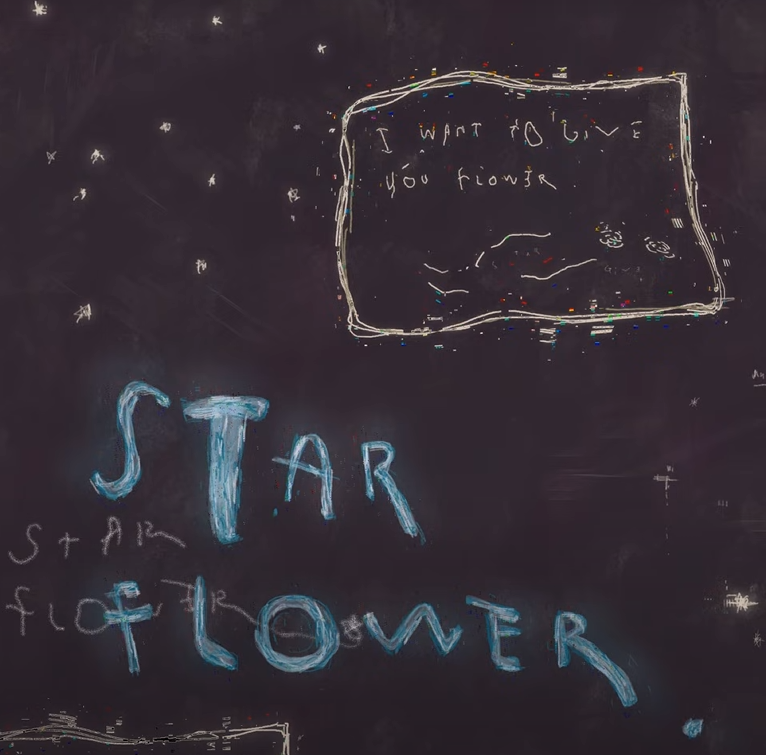 I WANT TO GIVE
YOU FLOWER
STAR
FLOWER.
STAR
FLOWER